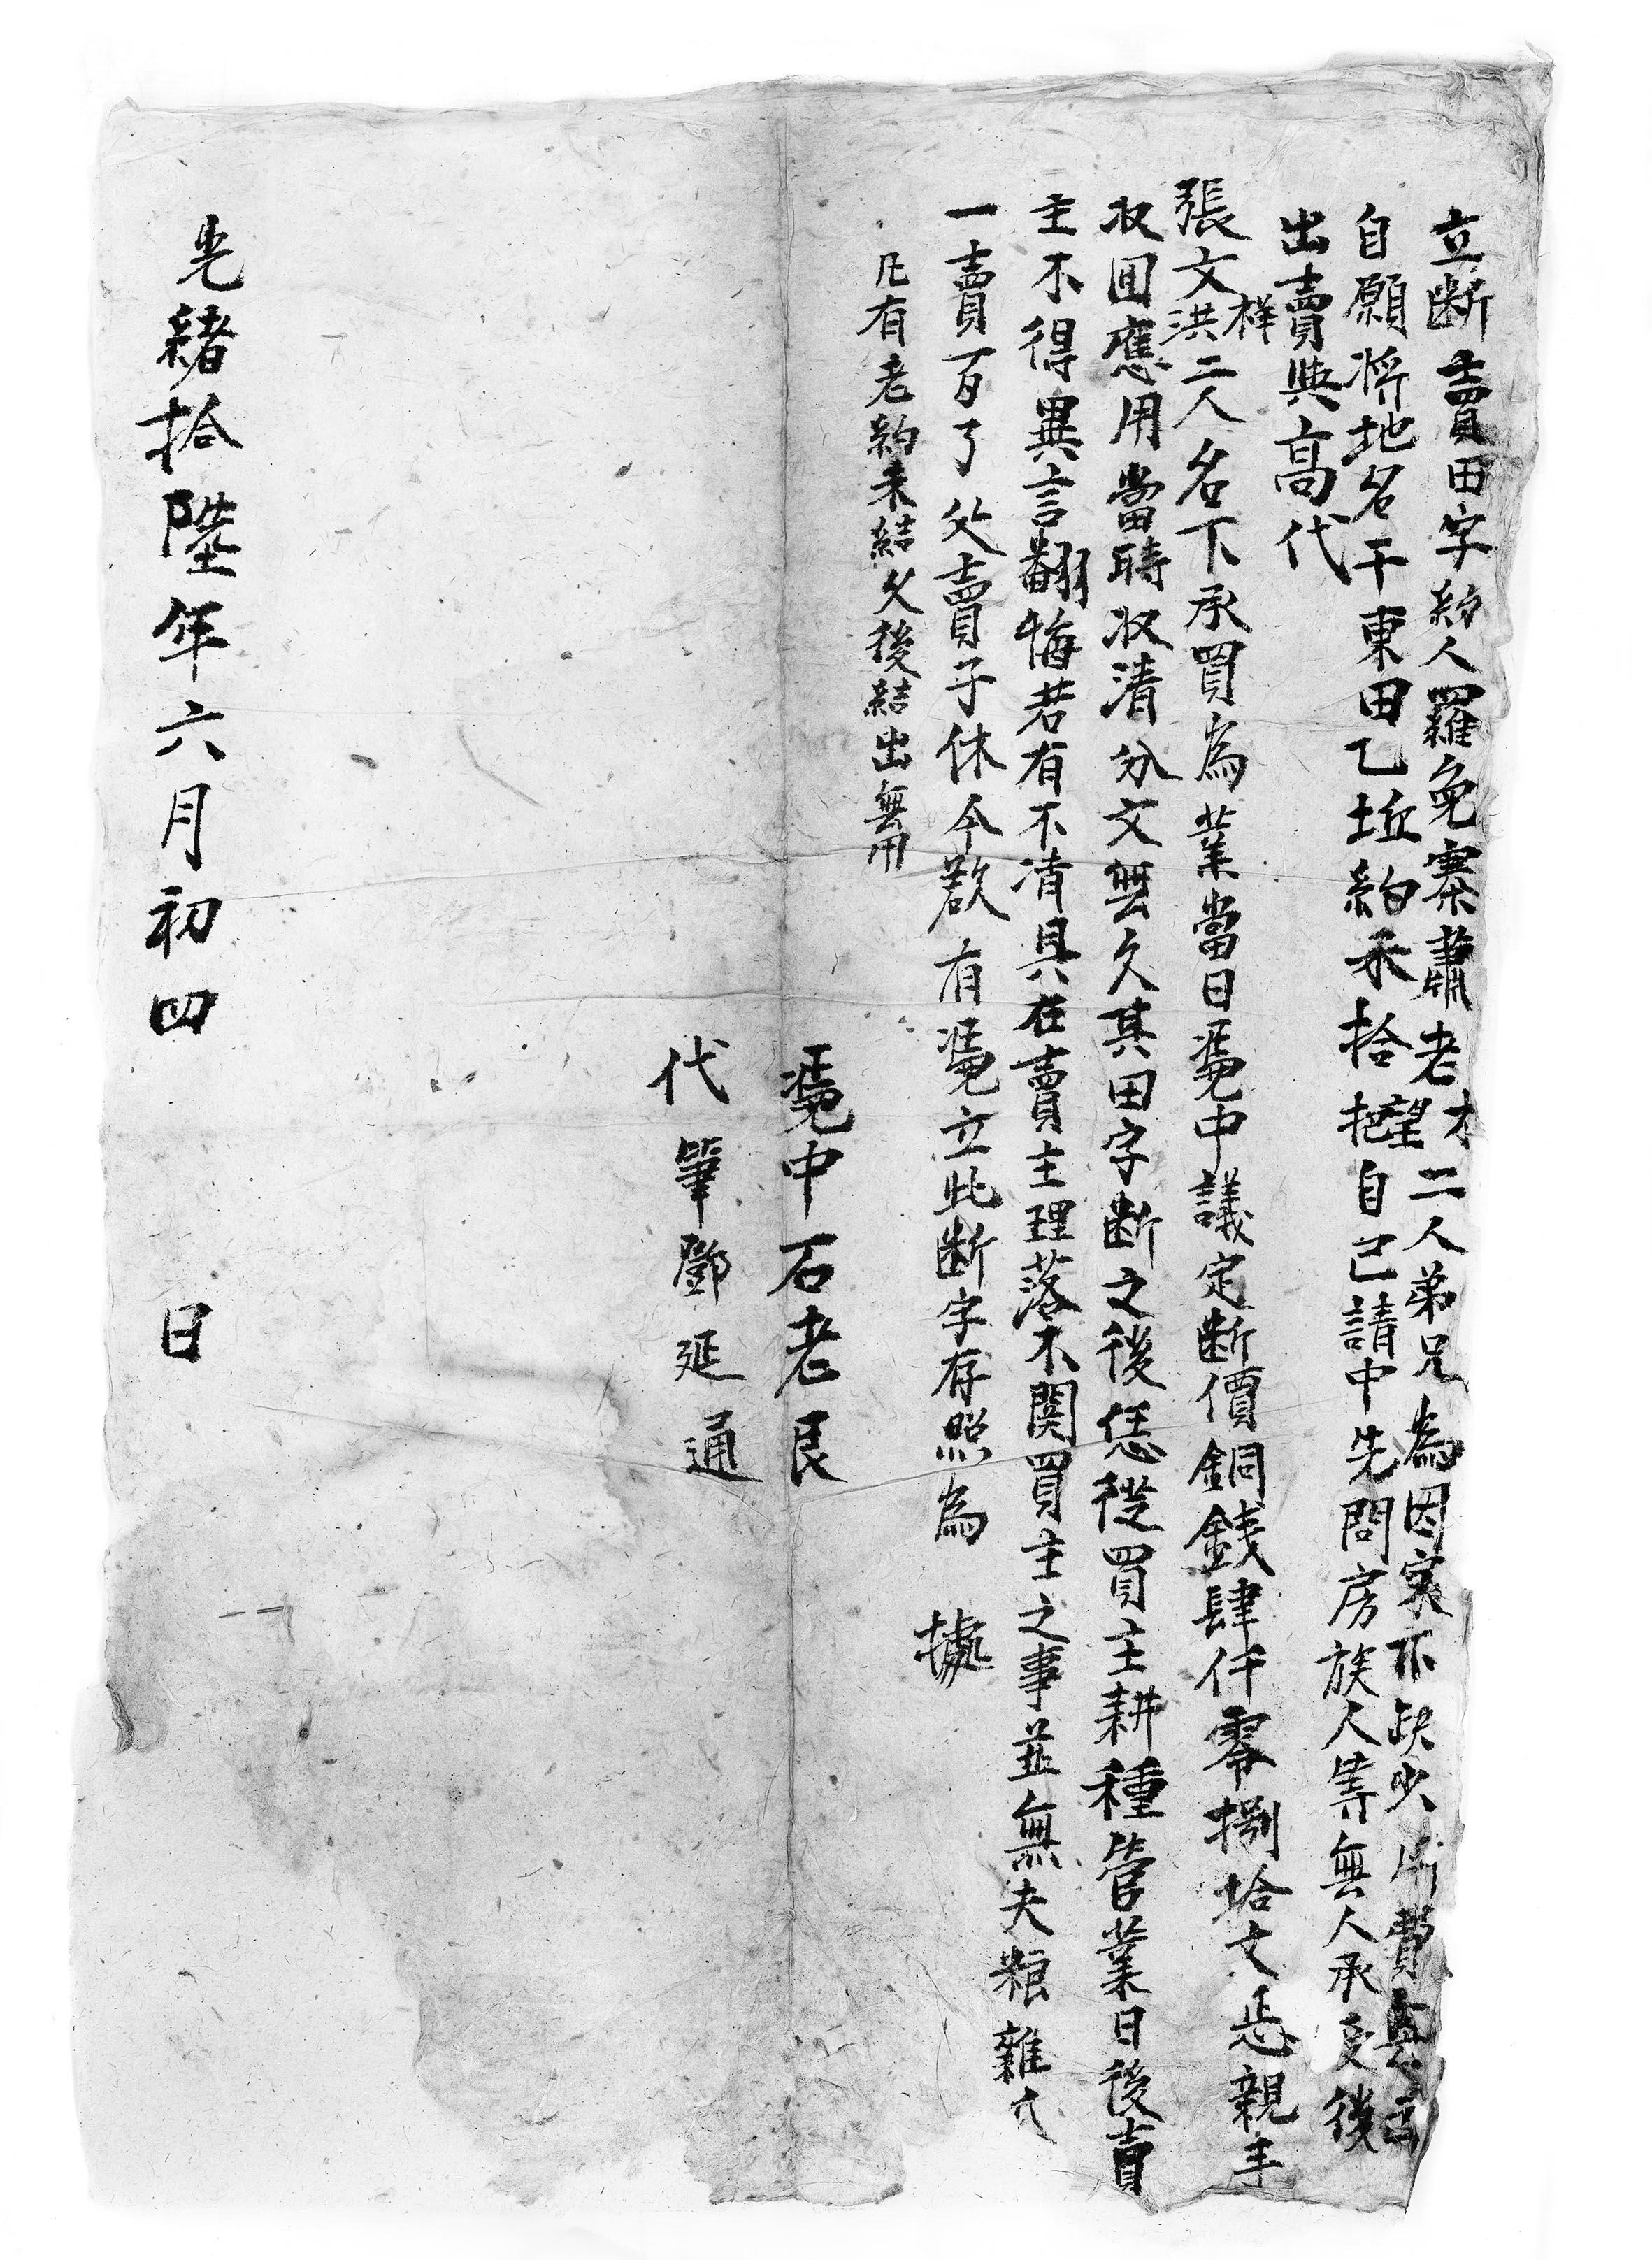 立断賣田字約人羅免寨蕭老木望二人弟兄為因家下缺少所費無
自願將地名干東田乙坵約禾拾把自己請中先問房族人等無人承受後
出賣與高代
張文祥洪二人名下承買為業當日憑中議定断價銅錢肆仟零捌拾文恁親手
收囬應用當時收清分文無欠其田字断之後恁從買主耕種管業日後賣
主不得異言翻悔若有不清具在賣主理落不関買主之事並無夫粮雜
一賣百了父賣子休今欲有憑立此断字存照為據
凡有老約未結父後結出無用
憑中石老艮
代筆鄧延通
光緒拾陸年六月初四日